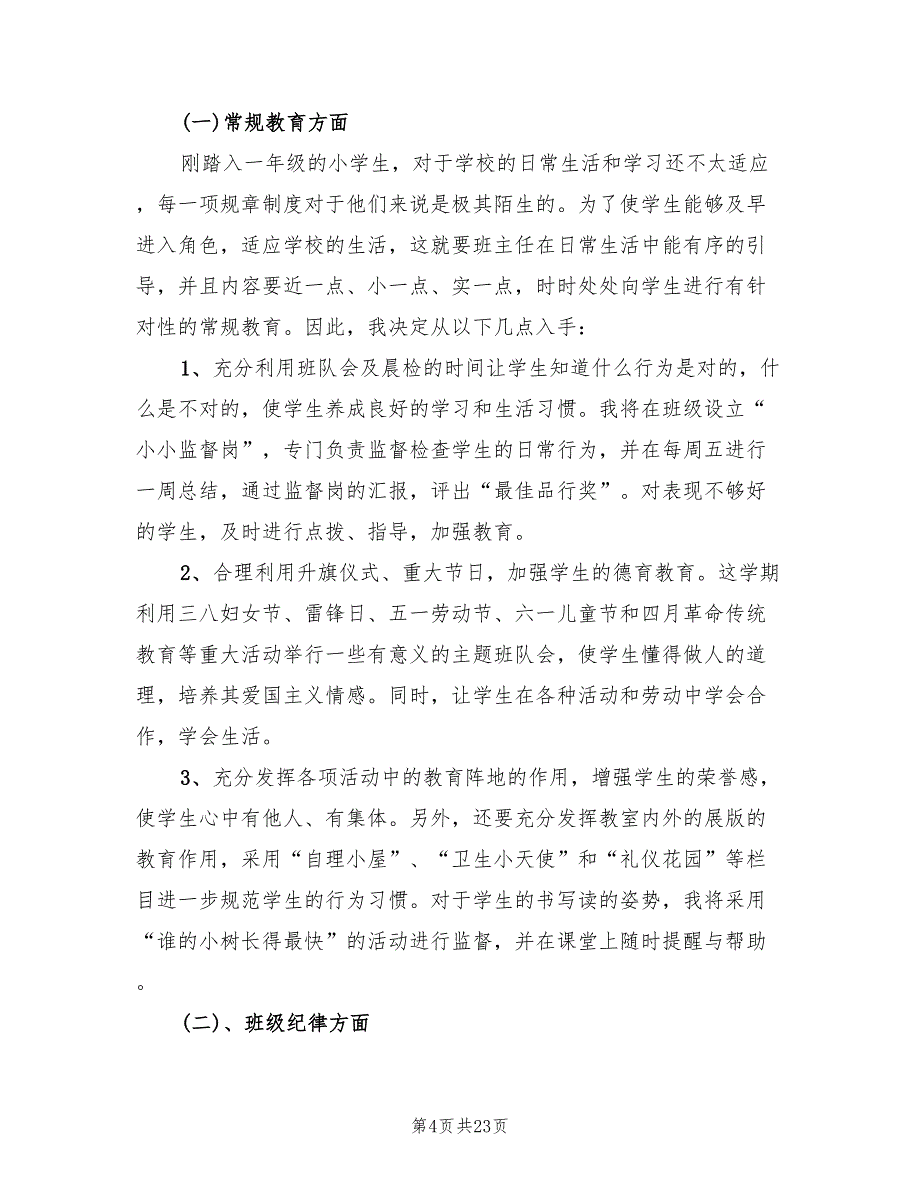 (一)常规教育方面
刚踏入一年级的小学生，对于学校的日常生活和学习还不太适应
，每一项规章制度对于他们来说是极其陌生的。为了使学生能够及早
进入角色，适应学校的生活，这就要班主任在日常生活中能有序的引
导，并且内容要近一点、小一点、实一点，时时处处向学生进行有针
对性的常规教育。因此，我决定从以下几点入手：
1、充分利用班队会及晨检的时间让学生知道什么行为是对的，什
么是不对的，使学生养成良好的学习和生活习惯。我将在班级设立“
小小监督岗”，专门负责监督检查学生的日常行为，并在每周五进行
一周总结，通过监督岗的汇报，评出“最佳品行奖”。对表现不够好
的学生，及时进行点拨、指导，加强教育。
2、合理利用升旗仪式、重大节日，加强学生的德育教育。这学期
利用三八妇女节、雷锋日、五一劳动节、六一儿童节和四月革命传统
教育等重大活动举行一些有意义的主题班队会，使学生懂得做人的道
理，培养其爱国主义情感。同时，让学生在各种活动和劳动中学会合
作，学会生活。
3、充分发挥各项活动中的教育阵地的作用，增强学生的荣誉感，
使学生心中有他人、有集体。另外，还要充分发挥教室内外的展版的
教育作用，采用“自理小屋”、“卫生小天使”和“礼仪花园”等栏
目进一步规范学生的行为习惯。对于学生的书写读的姿势，我将采用
“谁的小树长得最快”的活动进行监督，并在课堂上随时提醒与帮助
。
(二)、班级纪律方面
第4页共23页